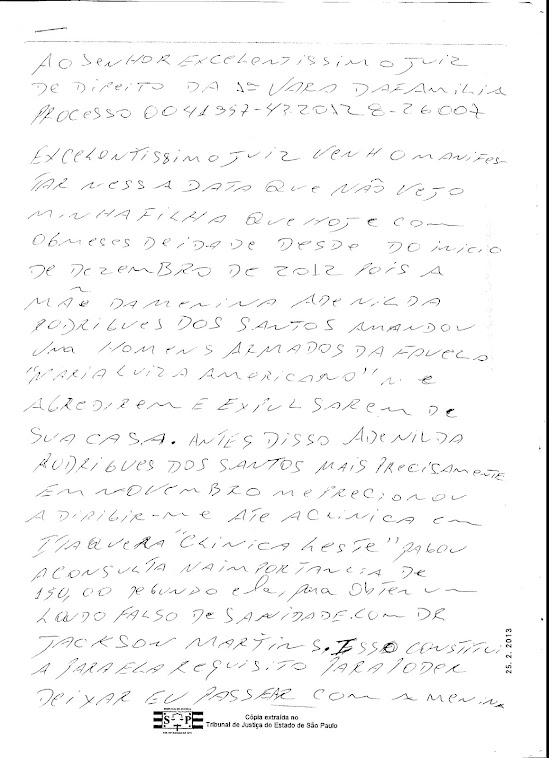 AO SENHOR EXCELENTISSIMO JUIZ
DE DIREITO DA 1ª VARA DAFAMILIA
PROCESSO 0041397-47.2012 8-26007
EXCELENTISSIMO JUIZ VENHO MANIFES-
TAR NESSA DATA QUE NÃO VEJO
MINHA FILHA QUE HOJE COM
06 MESES DE IDADE DESDE DO INICIO
DE DEZEMBRO DE 2012 POIS A
MÃE DA MENINA ADENILDA
RODRIGUES DOS SANTOS AMANDOU
HOMENS ARMADOS DA FAVELA
"MARIA LUIZA AMERICANO" E
AGREDIREM E EXPULSAREM DE
SUA CASA. ANTES DISSO ADENILDA
RODRIGUES DOS SANTOS MAIS PRECISAMENTE
EM NOVEMBRO ME PRECIONOU
A DIRIGIR-ME ATE A CLINICA EM
ITAQUERA "CLINICA LESTE" PAGOU
A CONSULTA NA IMPORTANCIA DE
150,00 segundo ela, para obter um
LAUDO FALSO DE SANIDADE. COM DR
JACKSON MARTINS. ISSO CONSTITUI
A PARA ELA REQUISITO PARA PODER
DEIXAR EU PASSEAR COM A MENINA
25. 2. 2013
S P
Cópia extraída no
Tribunal de Justiça do Estado de São Paulo